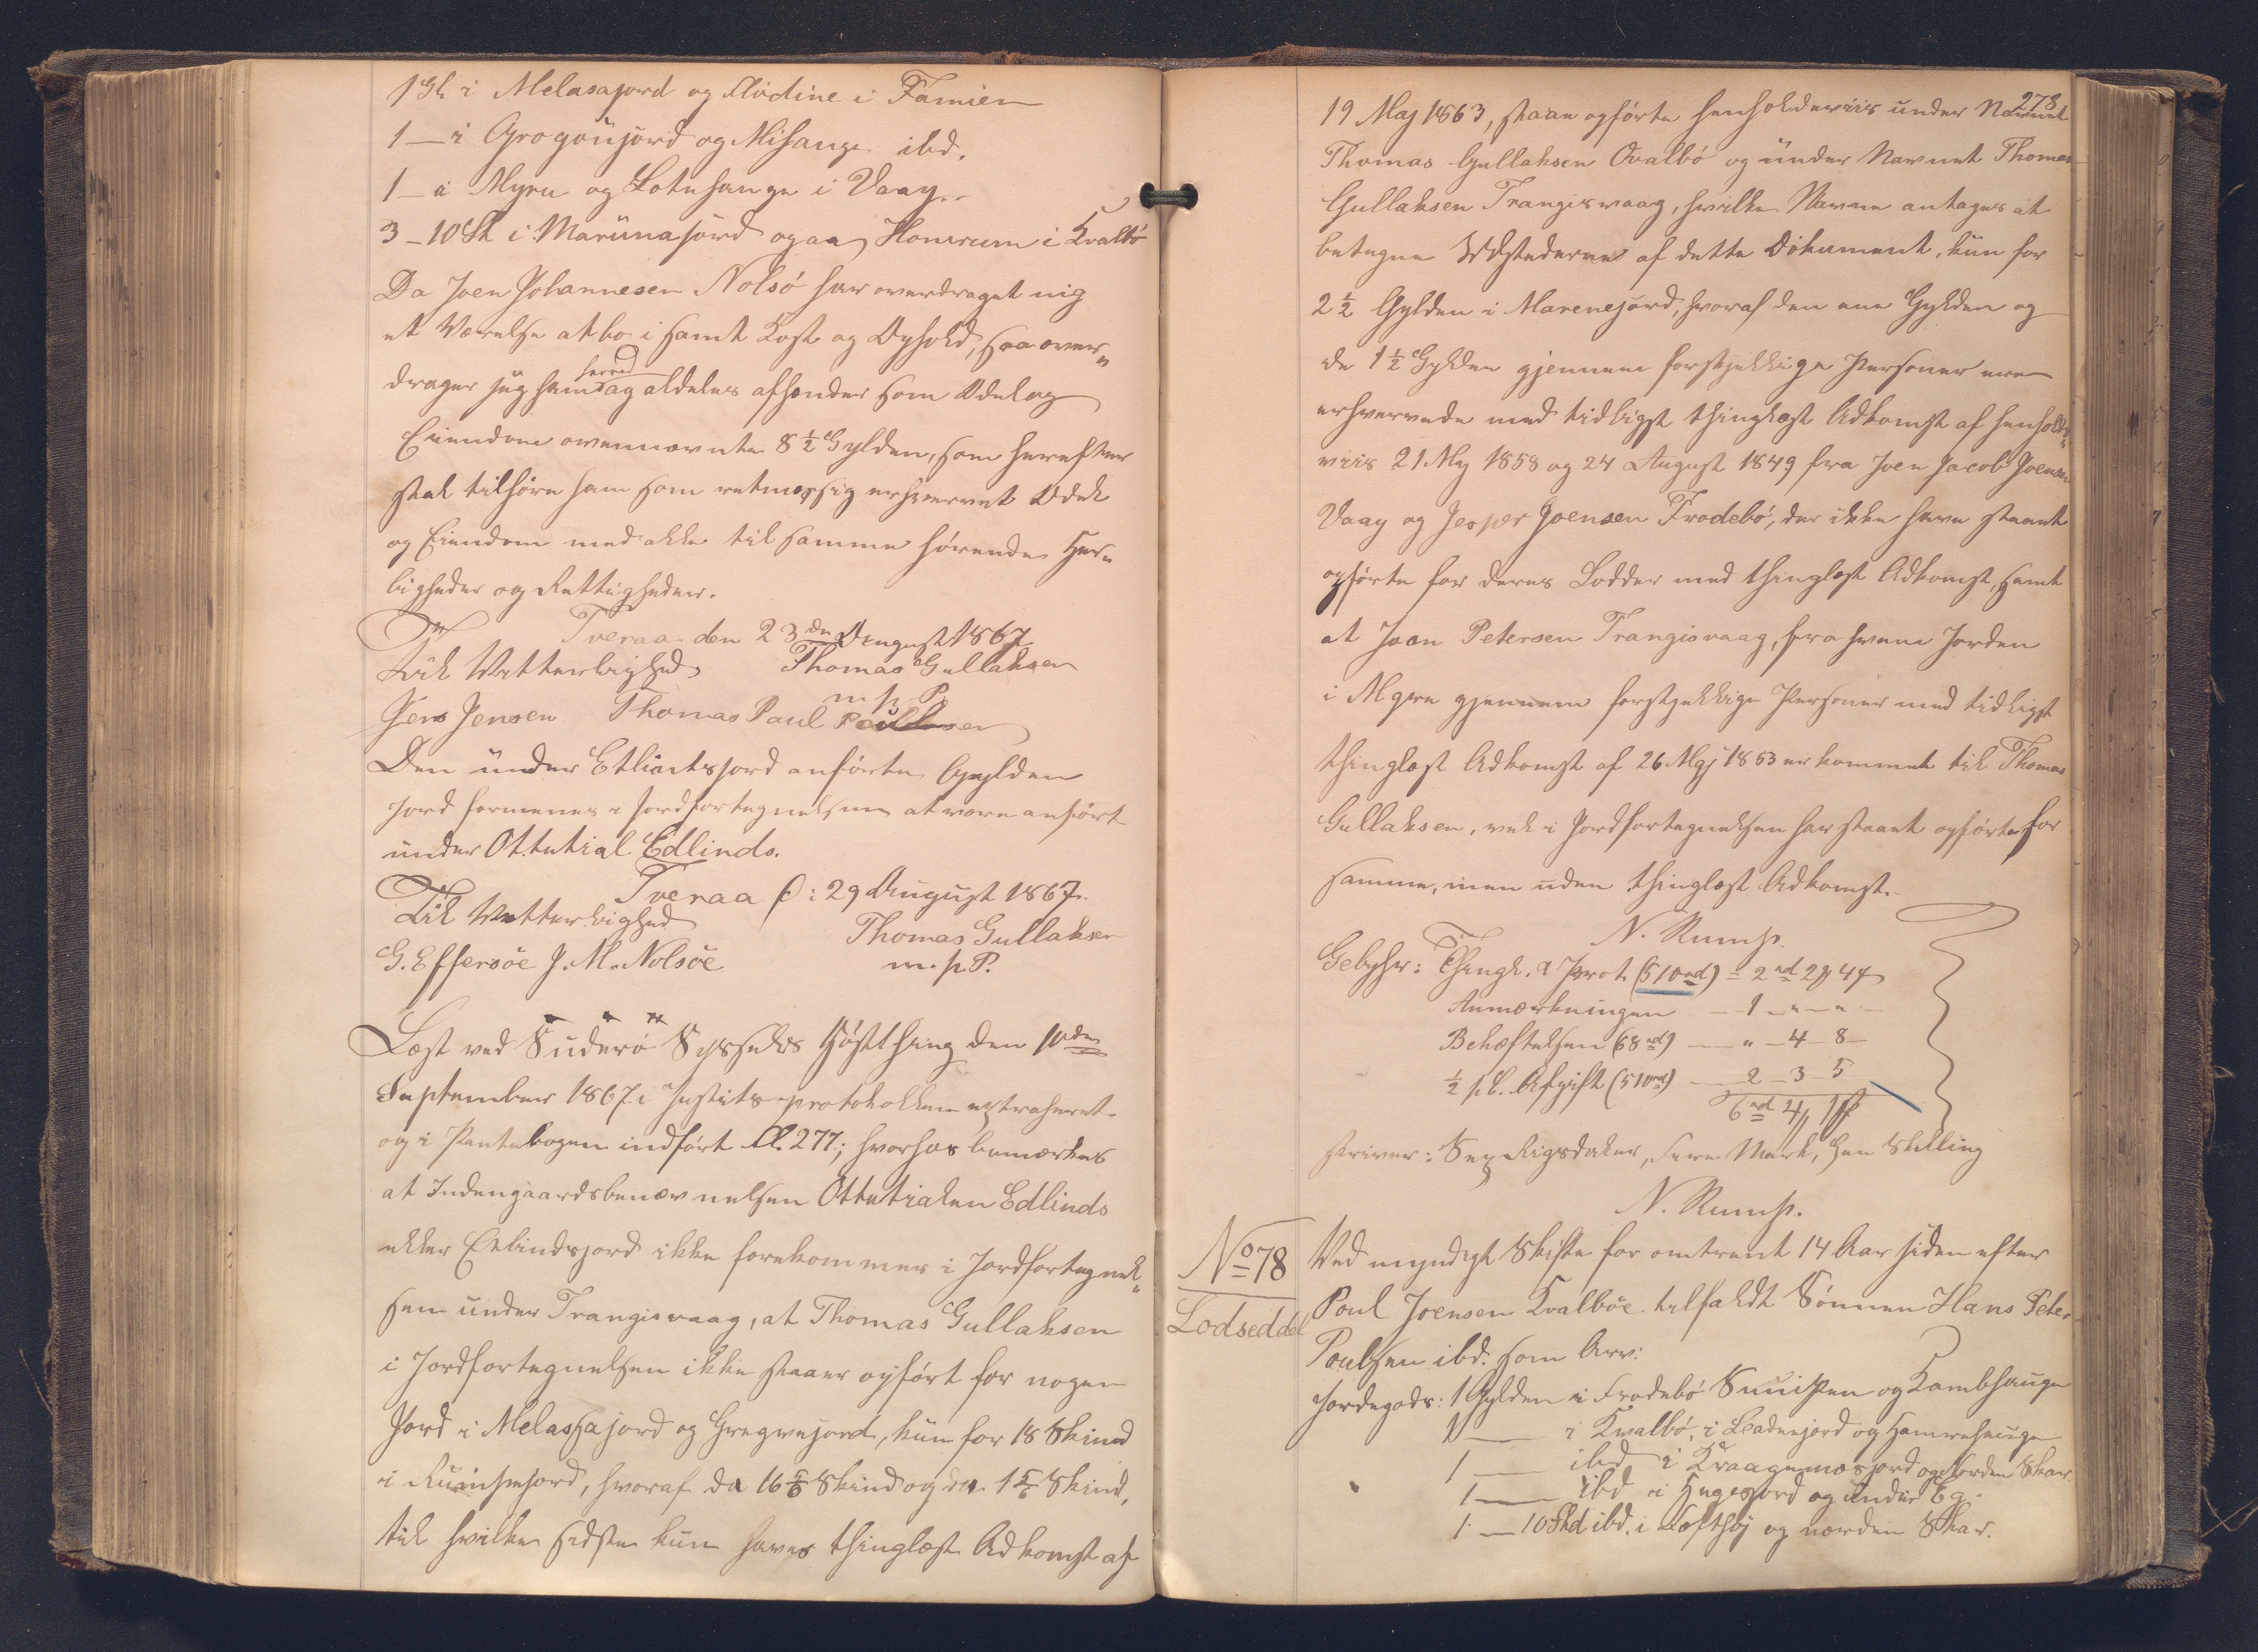 1 Gl. i Melasajord og Flødine i Famien
1 — i Grogoüjørd og Mihauge ibd.
1 — i Myru og Lotuhauge i Vaag..
3 — 10 Sk i Marünajørd og aa Homrum i Kvalbø
Da Joen Johannesen Nolsø har overdraget mig
et Værelse at bo i samt Kost og Ophold, saa over„
drager jeg ham herved og aldeles afhænder som Odel og
Eiendom ovennævnte 8½ Gylden, som herefter
skal tilhøre ham som retmæssig erhvervet Odel
og Eiendom med alle til samme hørende Her„
ligheder og Rettigheder.
Tveraa den 23de August 1867
Til Vitterlighed Thomas Gullaksen
m. p. P.
Jens Jensen Thomas Paul Poulsen
Den ünder Etliantsjord anførte Gylden
Jord formenes i Jordfortegnelsen at være anført
ünder Ottetial Edlinds.
Tveraa d: 29 August 1867.
Til Vitterlighed
Thomas Gullaksen
G. Effersöe J. M. Nolsöe m. p. P.
Læst ved Süderø Syssels Høstthing den 10de
September 1867 i Justits-protokollen extraheret
og i Pantebogen indført Fl. 277; hvorhos bemærkes
at Indengaardsbenævnelsen Ottetialen Edlinds
eller Etlindsjord ikke forekommer i Jordfortegnel„
sen ünder Trangisvaag, at Thomas Gullaksen
i Jordfortegnelsen ikke staaer opført for nogen
Jord i Melassajord og Gregorujord, kün for 18 Skind
i hvoraf da 16 5/6 Skind og da 1 5/6 Skind,
til hvilke sidste kün haves thinglæst Adkomst af
278
19 Maj 1863, staae opførte henholdsviis ünder Navnet
Thomas Gullaksen Qvalbø og ünder Navnet Thomas
Gullaksen Trangisvaag, hvilke Navne antages at
betegne Udstederen af dette Dokument, kün for
2½ Gylden i Marenejord, hvoraf den ene Gylden og
de 1½ Gylden gjennem forskjellige Personer ere
erhvervede med tidligst thinglæst Adkomst af henholds„
viis 21 Maj 1858 og 24 August 1849 fra Joen Jacob Joensen
Vaag og Jesper Joensen Frodebø, der ikke have staaet
opførte for deres Lodder med thinglæst Adkomst, samt
at Joen Petersen Trangisvaag, fra hvem Jorden
i Myre gjennem forskjellige Personer med tidligst
thinglæst Adkomst af 26 Maj 1863 er kommet til Thomas
Gullaksen, vel i Jordfortegnelsen har staaet opført for
samme, men uden thinglæst Adkomst.
N. Rump.
Gebyhr: Thingl. & Prot. (510 rd) = 2 rd 2 ℳ 4 ꞵ
Anmærkningen — 1 — „ — „ —
Behæftelsen (68 rd) — „ — 4 — 8 —
½ p.C. Afgift (510 rd) — 2 — 3 — 5
6 rd 4 ℳ 1 ꞵ
skriver: Sex Rigsdaler, fire Mark, Een Skilling
N. Rump.
No 78
Lodseddel
Ved myndigt Skifte for omtrent 14 Aar siden efter
Poul Joensen Kvalböe tilfaldt Sønnen Hans Peter
Poulsen ibd. som Arv:
Jordegods: 1 Gylden i Frodebø og Lambhauge
1 — i Kvalbø, i og Hamrehauge
1 — ibd i Kraagemosjord og Norden Skar
1 — ibd i Hegesjord og Ünder Eg.
1 — 10 Skd ibd. i og norden Skar.